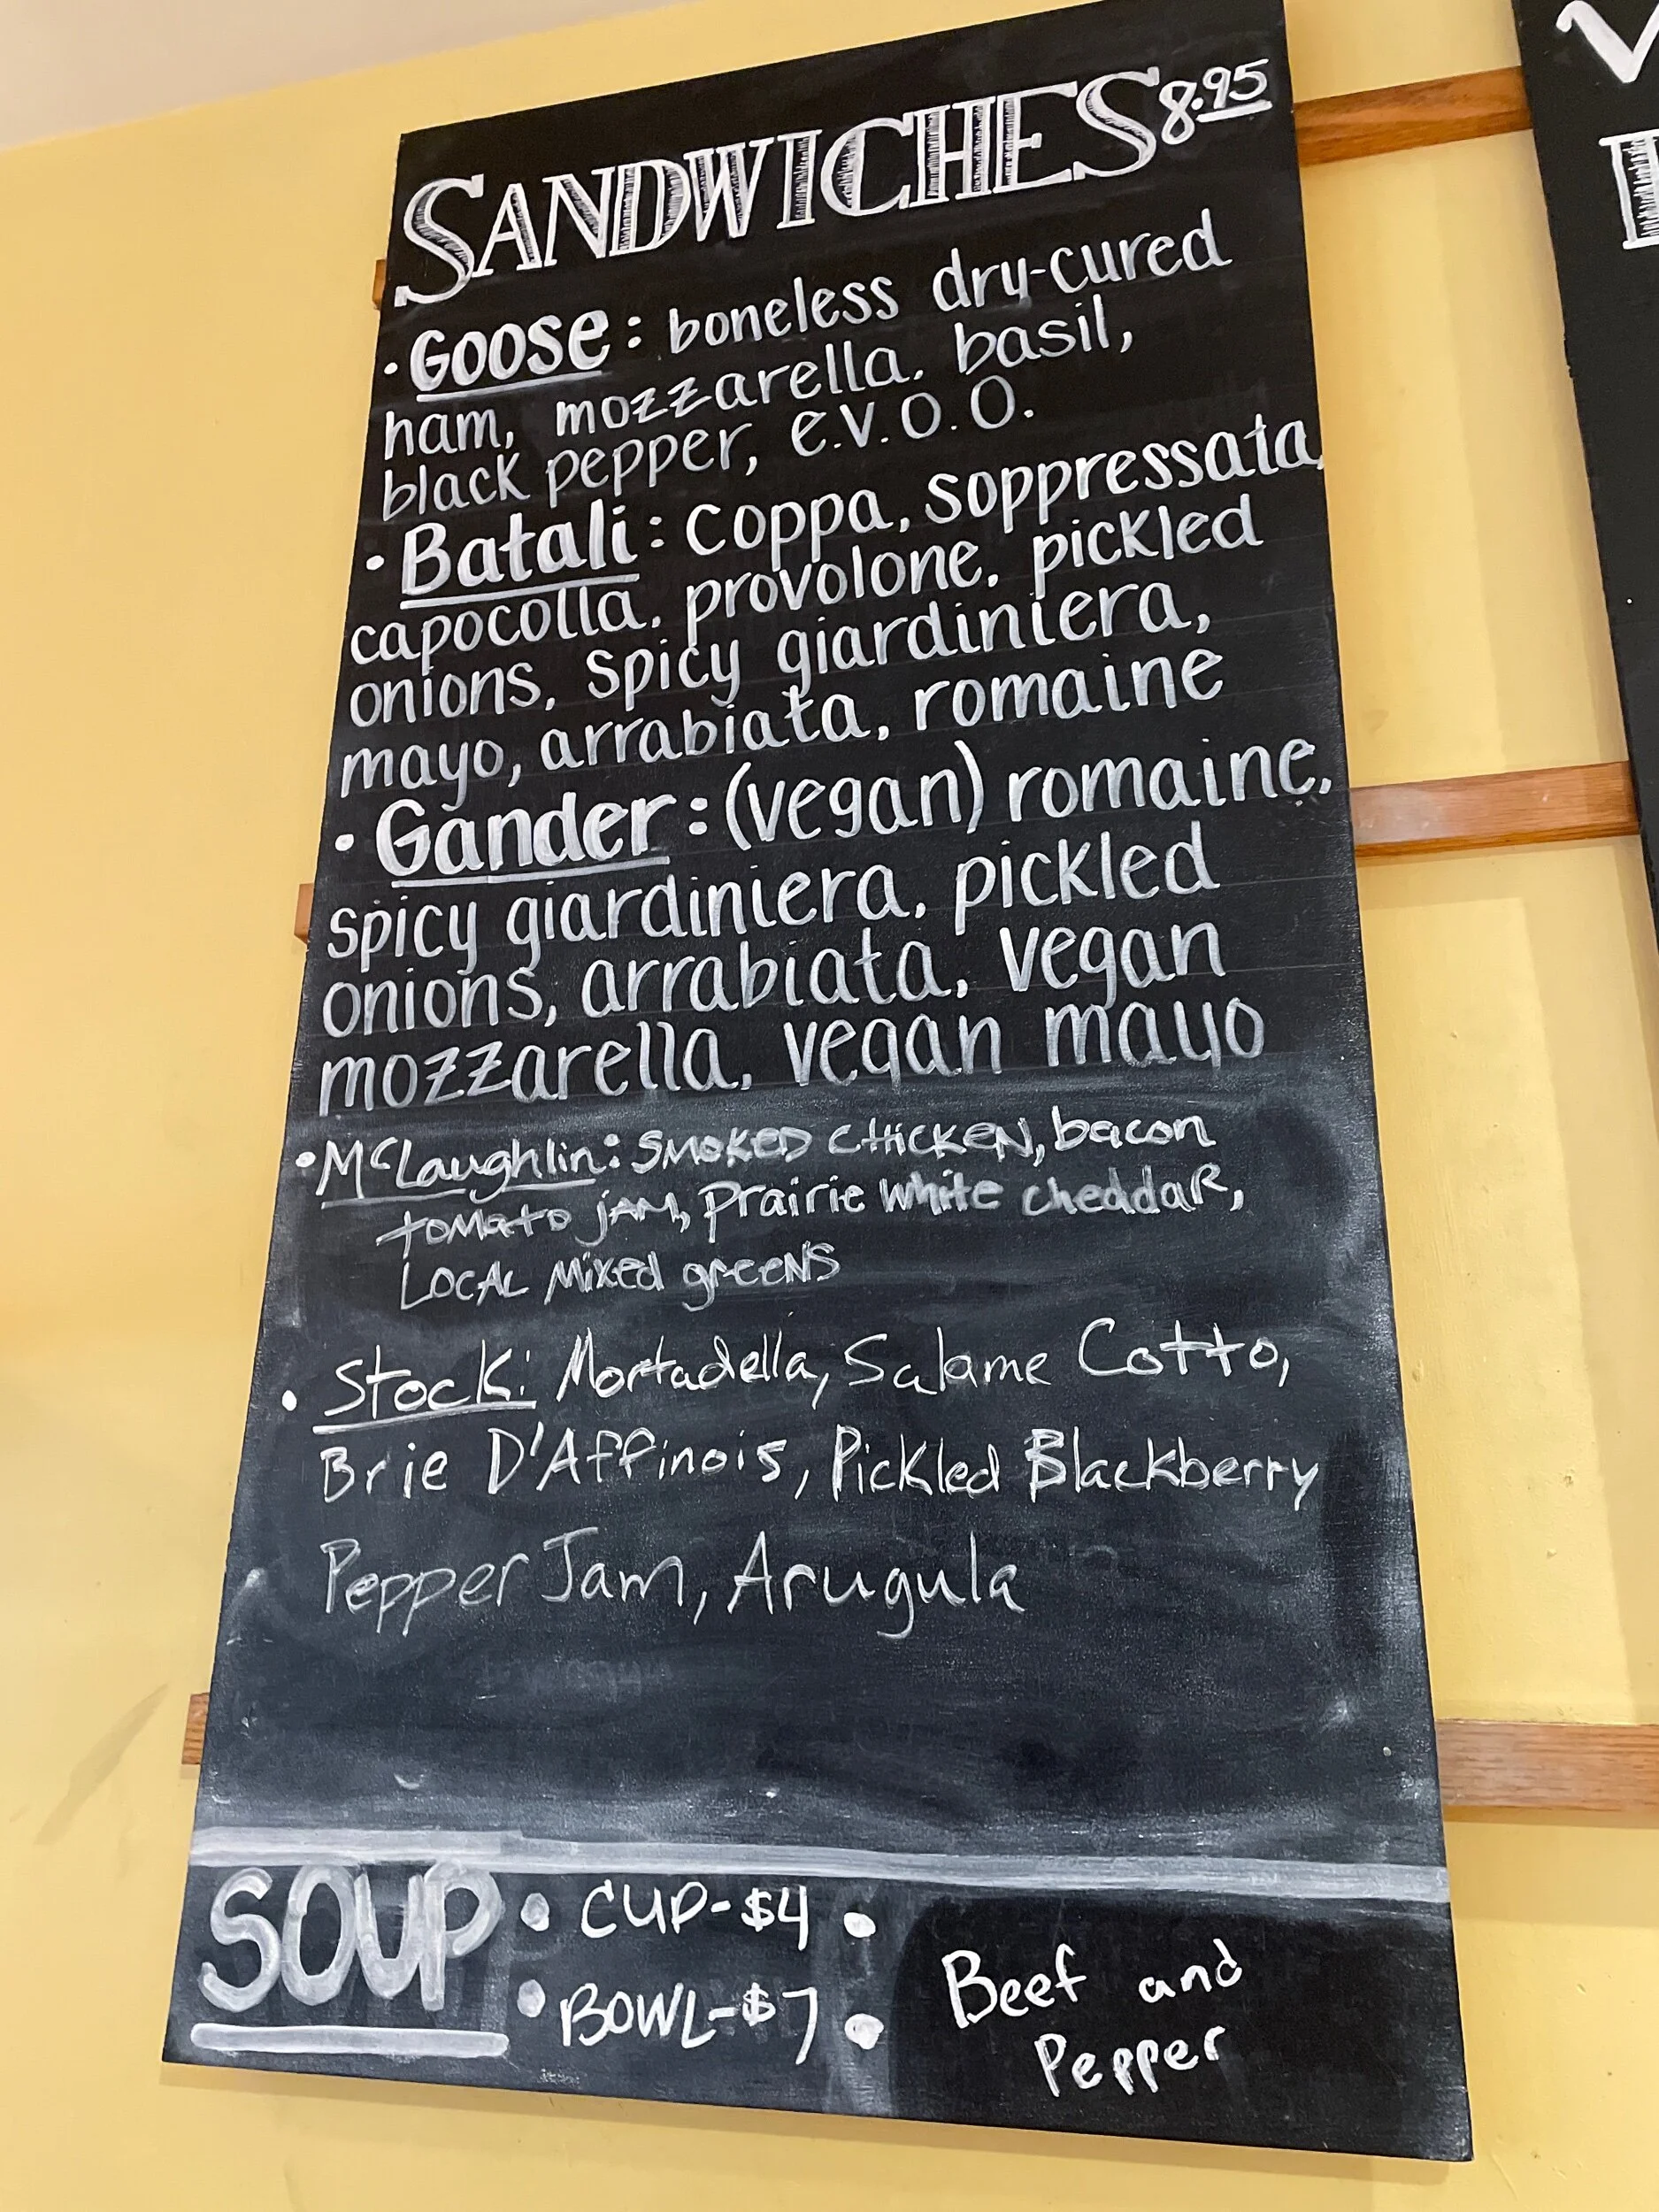 SANDWICHES 8.95
· Goose: boneless dry-cured
ham, mozzarella, basil,
black pepper, e.v.o.o.
· Batali: coppa, soppressata,
capocolla, provolone, pickled
onions, spicy giardiniera,
mayo, arrabiata, romaine
· Gander: (vegan) romaine,
spicy giardiniera, pickled
onions, arrabiata, vegan
mozzarella, vegan mayo
• McLaughlin: SMOKED CHICKEN, bacon
tomato jAM, Prairie White cheddaR,
LOCAL Mixed greeNS
• Stock: Mortadella, Salame Cotto,
Brie D'Affinois, Pickled Blackberry
Pepper Jam, Arugula
SOUP • CUP-$4 •
• BOWL-$7 •
Beef and
Pepper